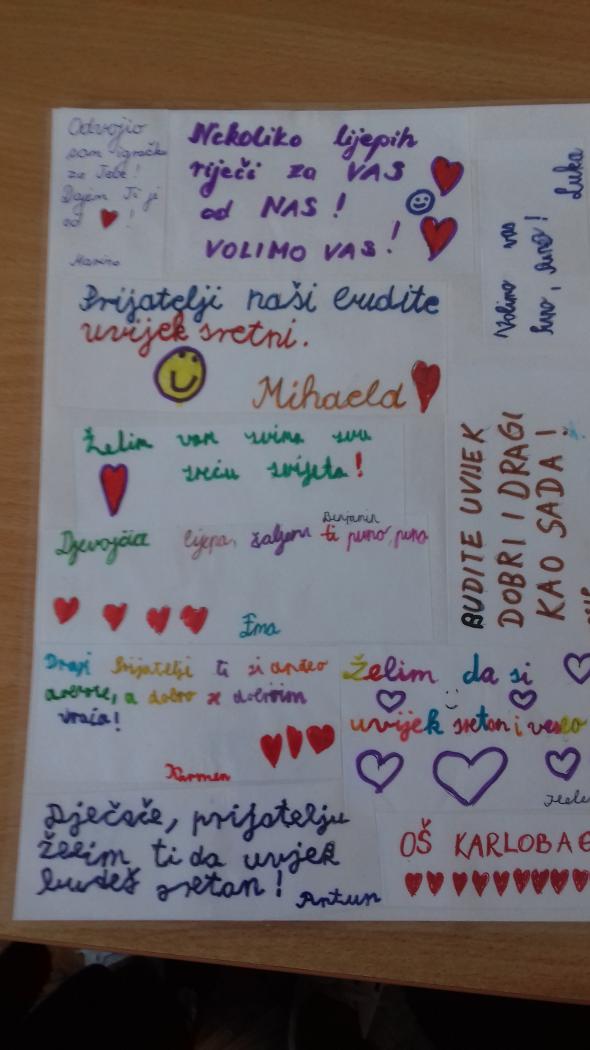 Odvojio
sam igračku
za Tebe!
Dajem Ti je
od !
Marino
Nekoliko lijepih
riječi za VAS
od NAS!
VOLIMO VAS!
Volimo vas
puno, puno!
Luka
Prijatelji naši budite
uvijek sretni.
Mihaela
Želim vam svima svu
sreću svijeta!
Benjamin
Djevojčice lijepa, šaljem ti puno, puno
Ema
BUDITE UVIJEK
DOBRI I DRAGI
KAO SADA!
Dragi Prijatelji ti si anđeo
dobrote, a dobro se dobrim
vraća!
Karmen
Želim da si
uvijek sretan i veseo
Dječače, prijatelju
želim ti da uvjek
budeš sretan!
Antun
OŠ KARLOBAG